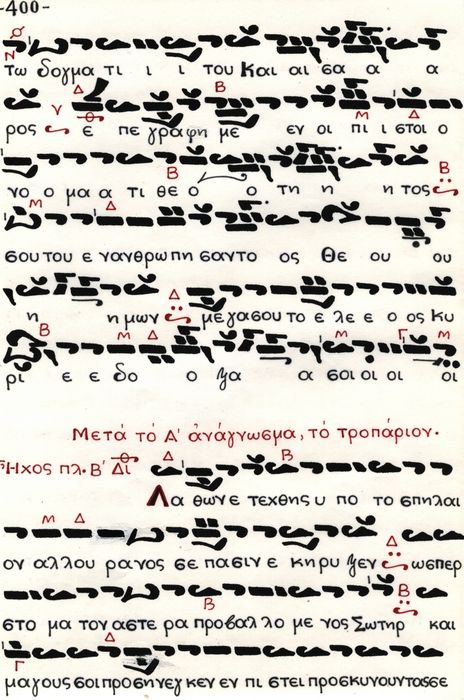 -400-
τω δογμα τι ι ι του Και αι σα α α
ρος ε πε γράφη με εν οι πι ι στοι ο
νο ο μα α τι θε ο ο τη η η τος
σου του ε νανθρω πη σαντο ος Θε ου ου
η η μων με γα σου το ε λε ε ο ος κυ
ρι ε ε δο ο ξα α σοι οι οι οι
Μετά τό Δ' ἀνάγνωσμα, τό τροπάριον.
Ἦχος πλ. Β' Δι
Λα θων ε τεχθης υ πο το σπηλαι
ον αλλ ου ρα νος σε πα σιν ε κη ρυ ξεν ωσπερ
στο μα τον α στε ρα προ βαλλο με νος Σωτηρ και
μα γους σοι προ σηνεγ κεν εν πι στει προσ κυ νουντας σε